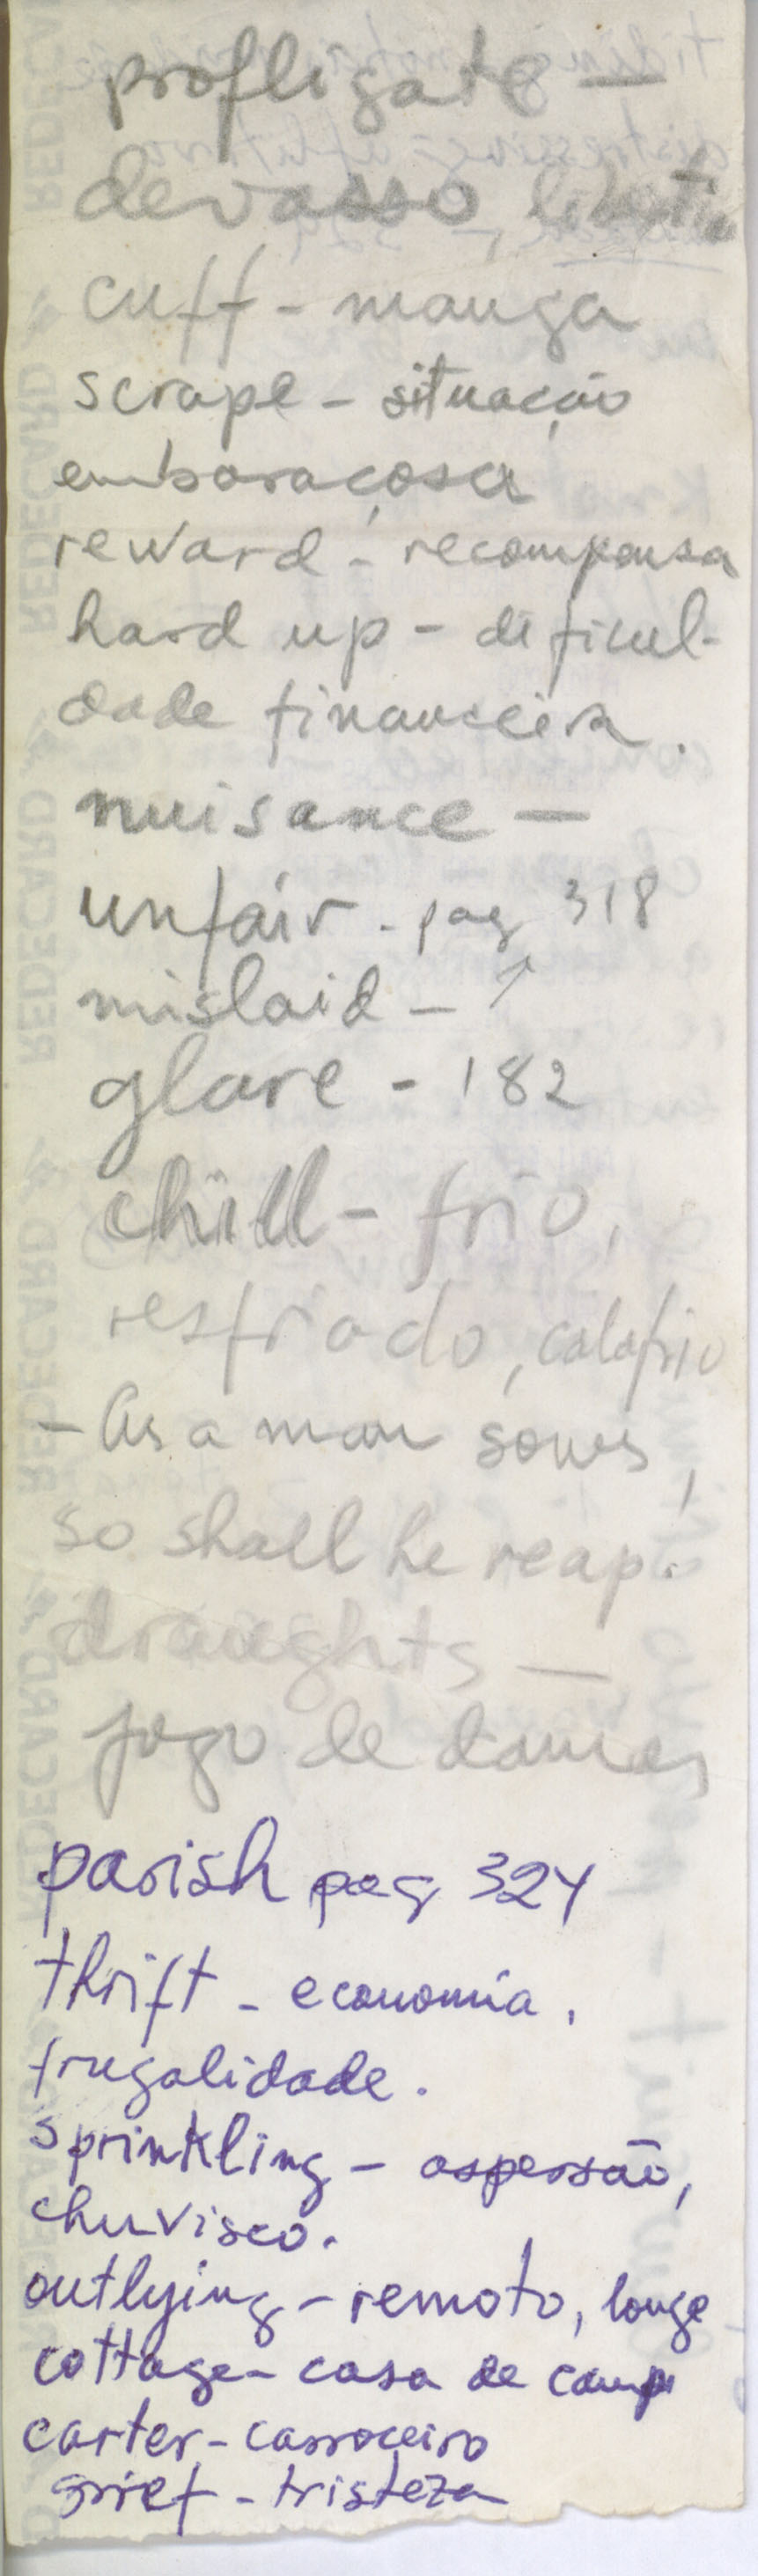 profligate —
devasso, libertin
cuff - manga
scrape - situação
embaraçosa
reward - recompensa
hard up - dificul-
dade financeira.
nuisance —
unfair - pag 318
mislaid - ↑
glare - 182
chill - frio,
resfriado, calafrio
- As a man sows,
so shall he reap.
draughts —
jogo de damas
parish pag 324
thrift - economia,
frugalidade.
sprinkling - aspersão,
chuvisco.
outlying - remoto, longe
cottage - casa de camp
carter - carroceiro
grief - tristeza
REDECARD
REDECARD
REDECARD
REDECARD
REDECARD